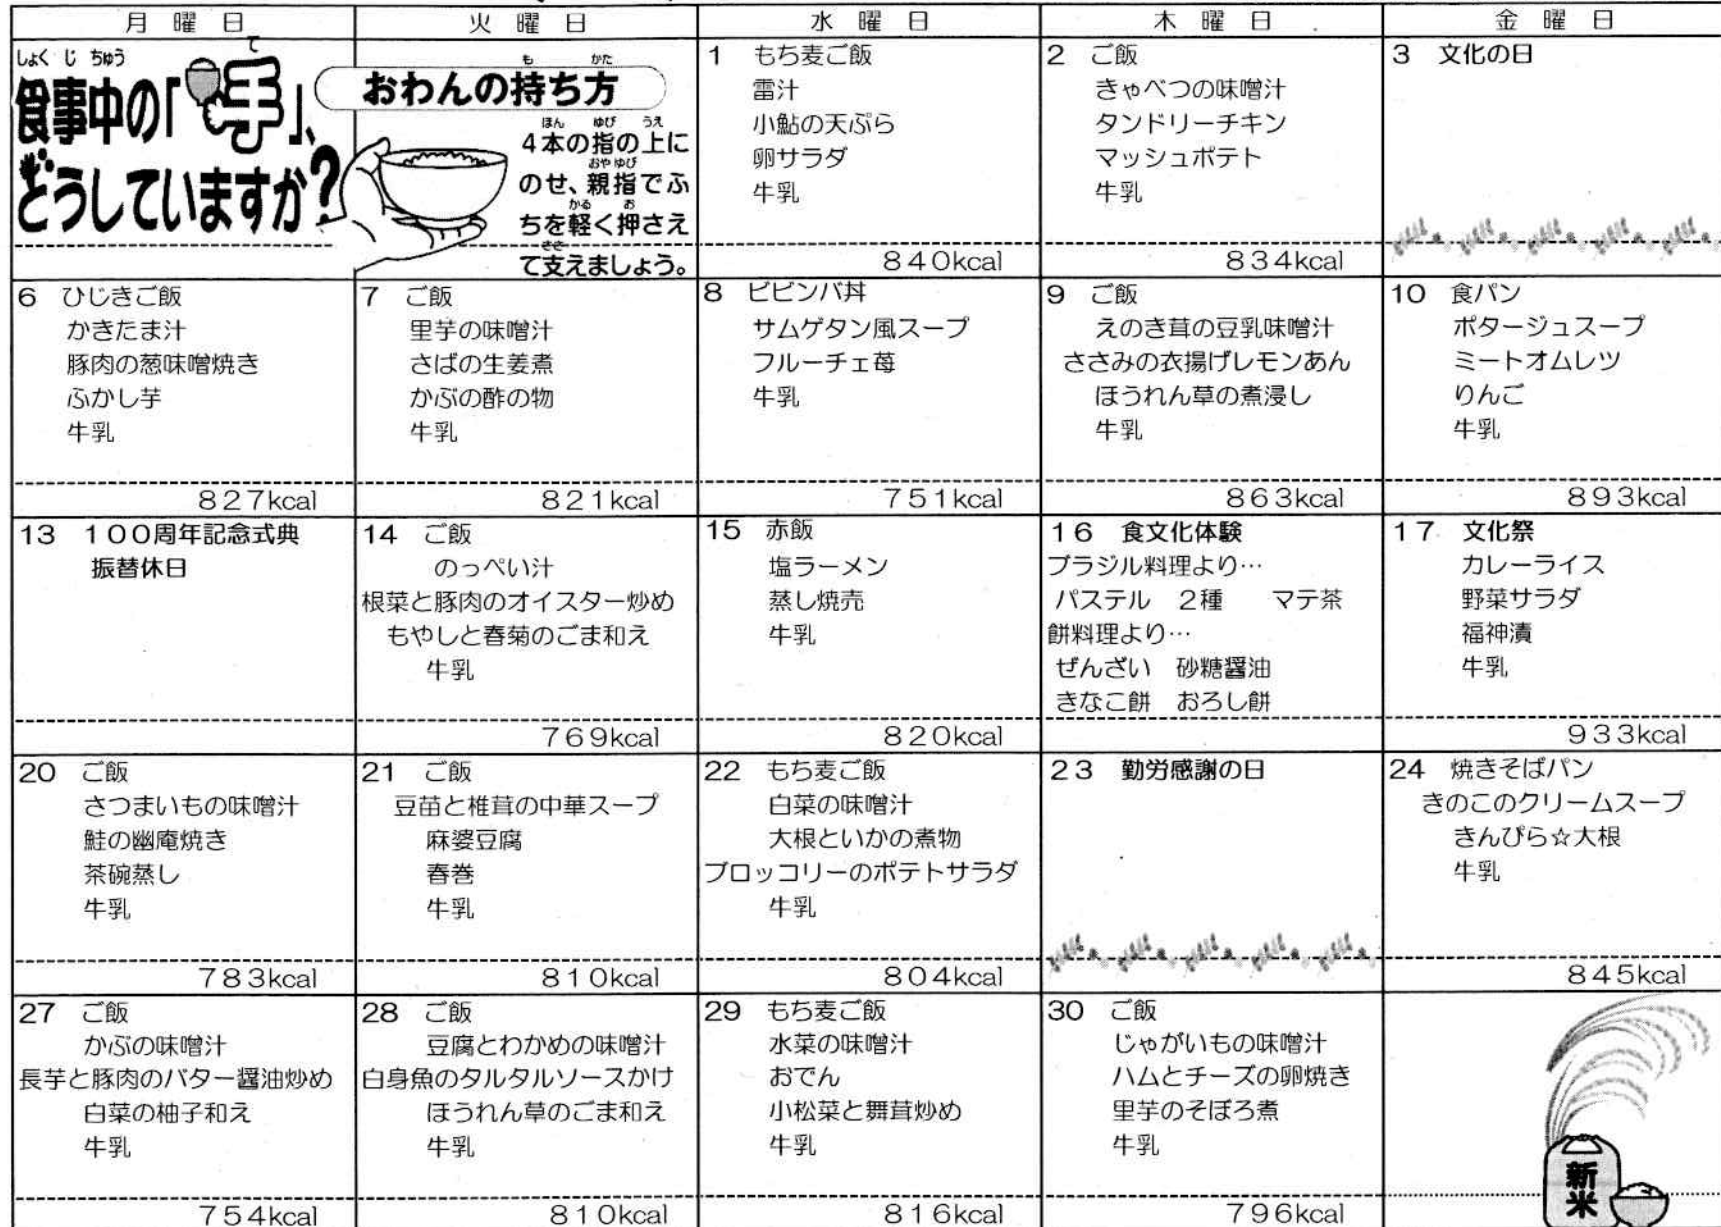 月曜日
火曜日
水曜日
木曜日
金曜日
しょく じ ちゅう て
食事中の「手」、
どうしていますか?
も かた
おわんの持ち方
ほん ゆび うえ
4本の指の上に
おやゆび
のせ、親指でふ
かる お
ちを軽く押さえ
ささ
て支えましょう。
1 もち麦ご飯
雷汁
小鮎の天ぷら
卵サラダ
牛乳
840kcal
2 ご飯
きゃべつの味噌汁
タンドリーチキン
マッシュポテト
牛乳
834kcal
3 文化の日
6 ひじきご飯
かきたま汁
豚肉の葱味噌焼き
ふかし芋
牛乳
827kcal
7 ご飯
里芋の味噌汁
さばの生姜煮
かぶの酢の物
牛乳
821kcal
8 ビビンバ丼
サムゲタン風スープ
フルーチェ苺
牛乳
751kcal
9 ご飯
えのき茸の豆乳味噌汁
ささみの衣揚げレモンあん
ほうれん草の煮浸し
牛乳
863kcal
10 食パン
ポタージュスープ
ミートオムレツ
りんご
牛乳
893kcal
13 100周年記念式典
振替休日
14 ご飯
のっぺい汁
根菜と豚肉のオイスター炒め
もやしと春菊のごま和え
牛乳
769kcal
15 赤飯
塩ラーメン
蒸し焼売
牛乳
820kcal
16 食文化体験
ブラジル料理より…
パステル 2種 マテ茶
餅料理より…
ぜんざい 砂糖醤油
きなこ餅 おろし餅
17 文化祭
カレーライス
野菜サラダ
福神漬
牛乳
933kcal
20 ご飯
さつまいもの味噌汁
鮭の幽庵焼き
茶碗蒸し
牛乳
783kcal
21 ご飯
豆苗と椎茸の中華スープ
麻婆豆腐
春巻
牛乳
810kcal
22 もち麦ご飯
白菜の味噌汁
大根といかの煮物
ブロッコリーのポテトサラダ
牛乳
804kcal
23 勤労感謝の日
24 焼きそばパン
きのこのクリームスープ
きんぴら☆大根
牛乳
845kcal
27 ご飯
かぶの味噌汁
長芋と豚肉のバター醤油炒め
白菜の柚子和え
牛乳
754kcal
28 ご飯
豆腐とわかめの味噌汁
白身魚のタルタルソースかけ
ほうれん草のごま和え
牛乳
810kcal
29 もち麦ご飯
水菜の味噌汁
おでん
小松菜と舞茸炒め
牛乳
816kcal
30 ご飯
じゃがいもの味噌汁
ハムとチーズの卵焼き
里芋のそぼろ煮
牛乳
796kcal
新米